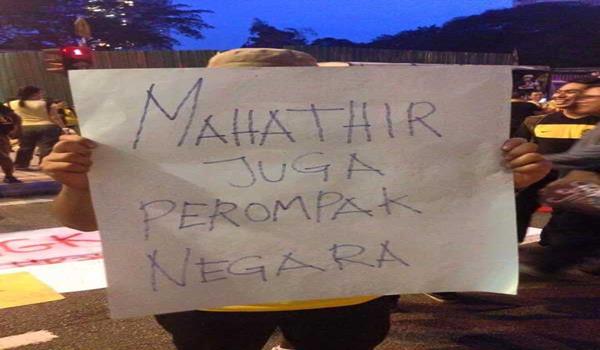 MAHATHIR
JUGA
PEROMPAK
NEGARA